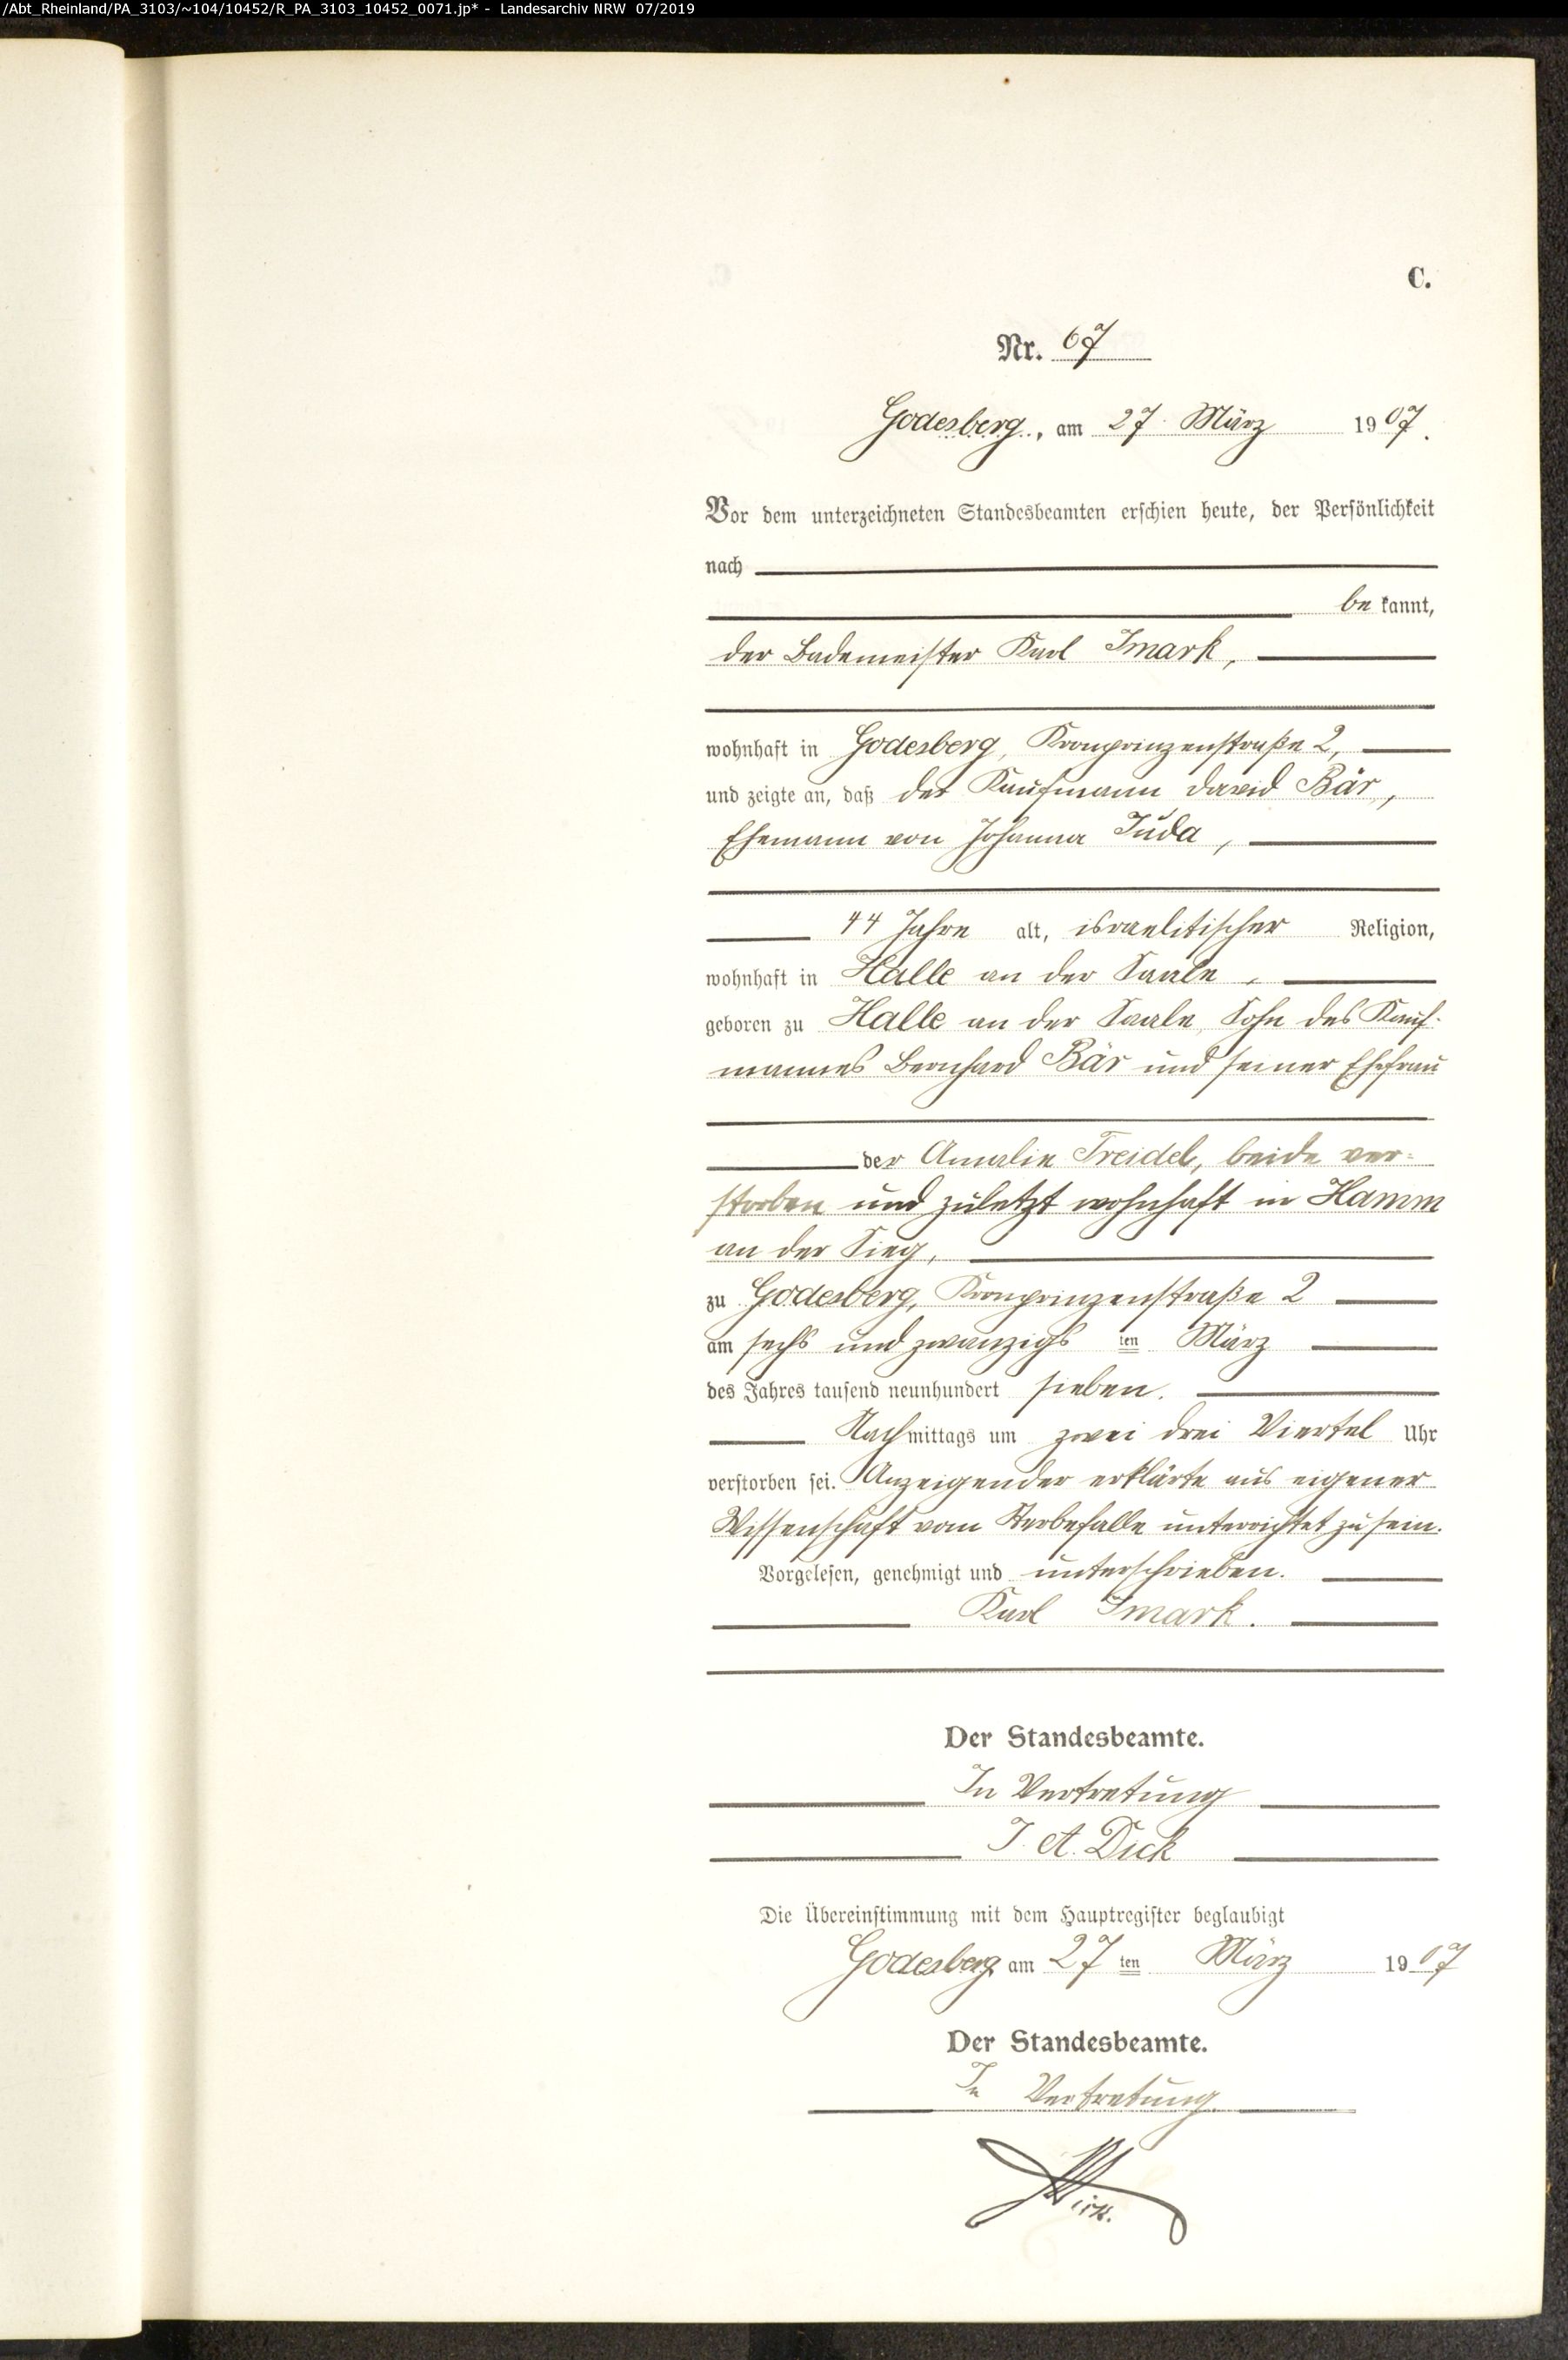 /Abt_Rheinland/PA_3103/~104/10452/R_PA_3103_10452_0071.jp* - Landesarchiv NRW 07/2019
C.
Nr. 67
Godesberg, am 27. März 1907.
Vor dem unterzeichneten Standesbeamten erschien heute, der Persönlichkeit
nach
be kannt,
der Bademeister Karl Imark,
wohnhaft in Godesberg, Kronprinzenstraße 2,
und zeigte an, daß der Kaufmann David Bär,
Ehemann von Johanna Juda,
44 Jahre alt, israelitischer Religion,
wohnhaft in Halle an der Saale,
geboren zu Halle an der Saale, Sohn des Kauf-
mannes Bernhard Bär und seiner Ehefrau
der Amalie Treidel, beide ver-
storben und zuletzt wohnhaft in Hamm
an der Sieg,
zu Godesberg, Kronprinzenstraße 2
am sechs und zwanzigs ten März
des Jahres tausend neunhundert sieben.
Nachmittags um zwei drei Viertel Uhr
verstorben sei. Anzeigender erklärte aus eigener
Wissenschaft vom Sterbefalle unterrichtet zu sein.
Vorgelesen, genehmigt und unterschrieben.
Karl Imark.
Der Standesbeamte.
In Vertretung
J. A. Dick
Die Übereinstimmung mit dem Hauptregister beglaubigt
Godesberg am 27 ten März 1907
Der Standesbeamte.
In Vertretung.